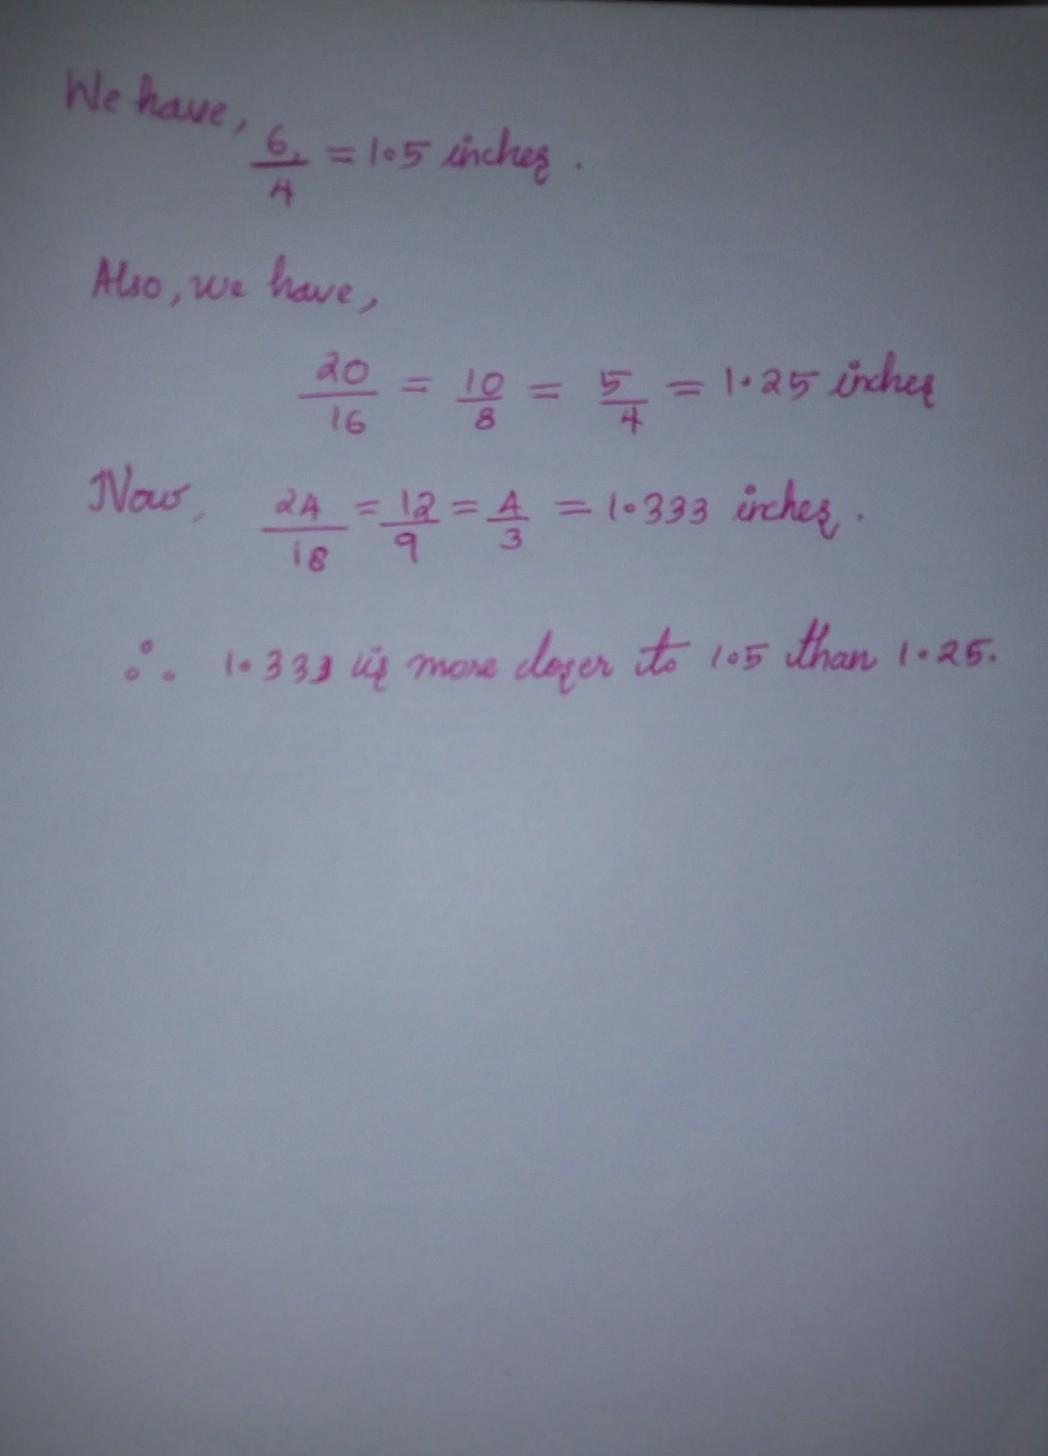 We have,
6/4 = 1.5 inches.
Also, we have,
20/16 = 10/8 = 5/4 = 1.25 inches
Now, 24/18 = 12/9 = 4/3 = 1.333 inches.
∴ 1.333 is more closer to 1.5 than 1.25.